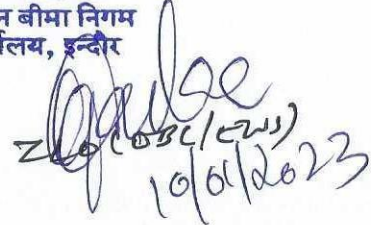 न बीमा निगम
लय, इन्दौर
ZLO (OBC/EWS)
10/01/2023